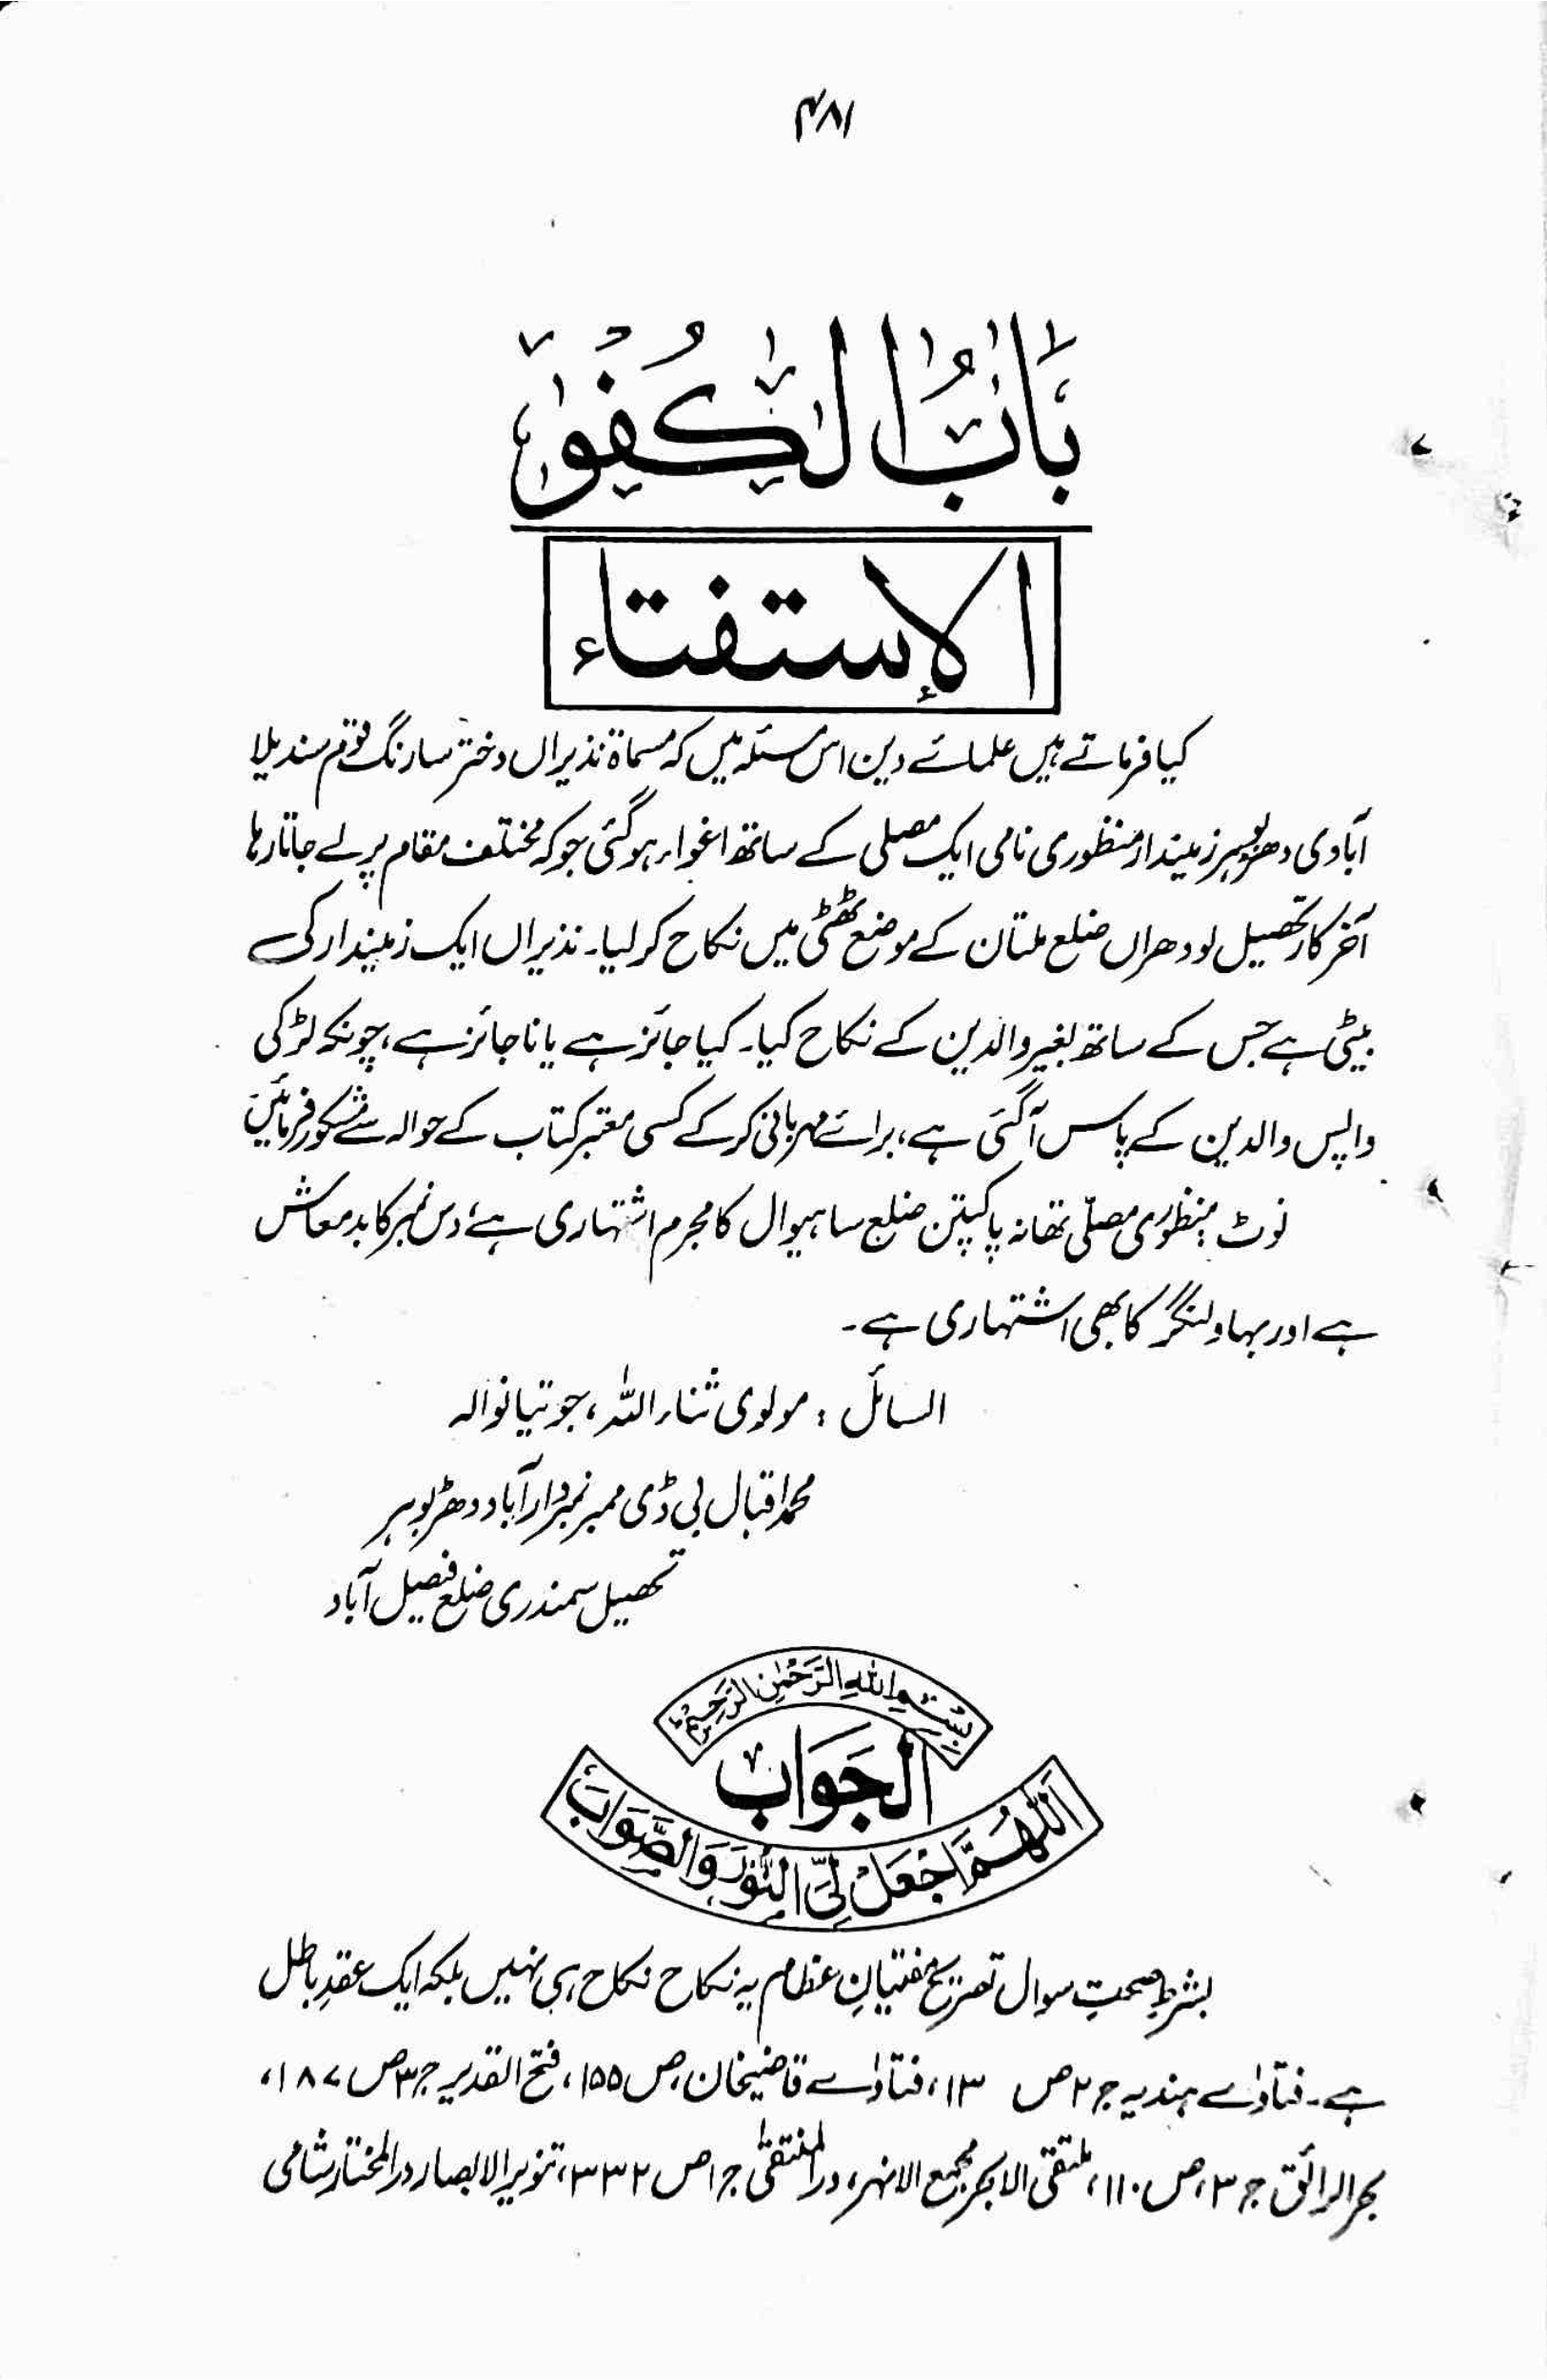 ۴۸۱
بَابُ الْكُفُوْ
الإستفتاء
کیا فرماتے ہیں علمائے دین اس مسئلہ میں کہ مسماۃ نذیراں دختر سارنگ قوم سندیلا
آبادی دھڑ بوہر زمیندار منظوری نامی ایک مصلی کے ساتھ اغواء ہو گئی جو کہ مختلف مقام پر لے جاتا رہا
آخر کار تحصیل لودھراں ضلع ملتان کے موضع ٹھٹی میں نکاح کر لیا۔ نذیراں ایک زمیندار کی
بیٹی ہے جس کے ساتھ بغیر والدین کے نکاح کیا۔ کیا جائز ہے یا ناجائز ہے، چونکہ لڑکی
واپس والدین کے پاس آ گئی ہے، برائے مہربانی کر کے کسی معتبر کتاب کے حوالہ سے مشکور فرمائیں
نوٹ : منظوری مصلّی تھانہ پاکپتن ضلع ساہیوال کا مجرم اشتہاری ہے، دس نمبر کا بدمعاش
ہے اور بہاولنگر کا بھی اشتہاری ہے۔
السائل : مولوی ثناء اللہ، جوتیانوالہ
محمد اقبال بی ڈی ممبر نمبردار آباد دھڑ بوہر
تحصیل سمندری ضلع فیصل آباد
بِسْمِ اللهِ الرَّحْمٰنِ الرَّحِيْمِ
الجَوَابْ
اَللّٰهُمَّ اجْعَلْ لِّيَ النُّوْرَ وَالصَّوَابَ
بشرطِ صحتِ سوال تصریح مفتیانِ عظام یہ نکاح نکاح ہی نہیں بلکہ ایک عقدِ باطل
ہے۔ فتاوٰے ہندیہ ج ۲ ص ۱۳، فتاوٰے قاضیخان، ص ۱۵۵، فتح القدیر ج ۳ ص ۱۸۷،
بحر الرائق ج ۳، ص ۱۱۰، ملتقی الابحر مجمع الانہر، در المنتقیٰ ج ۱ ص ۳۳۲، تنویر الابصار در المختار شامی